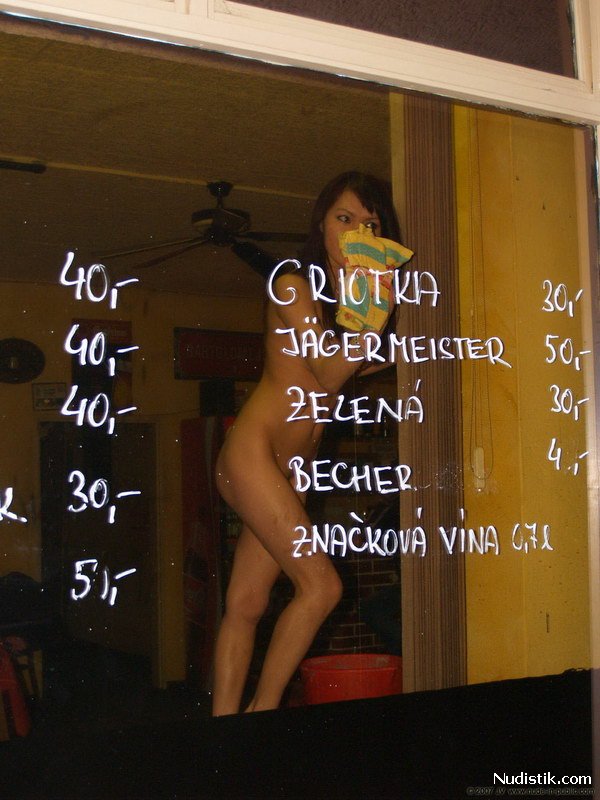 40,- GRIOTKA 30,-
40,- JÄGERMEISTER 50,-
40,- ZELENÁ 30,-
K. 30,- BECHER
50,- ZNAČKOVÁ VÍNA 0,7l
Nudistik.com
© 2007 JV www.nude-in-public.com